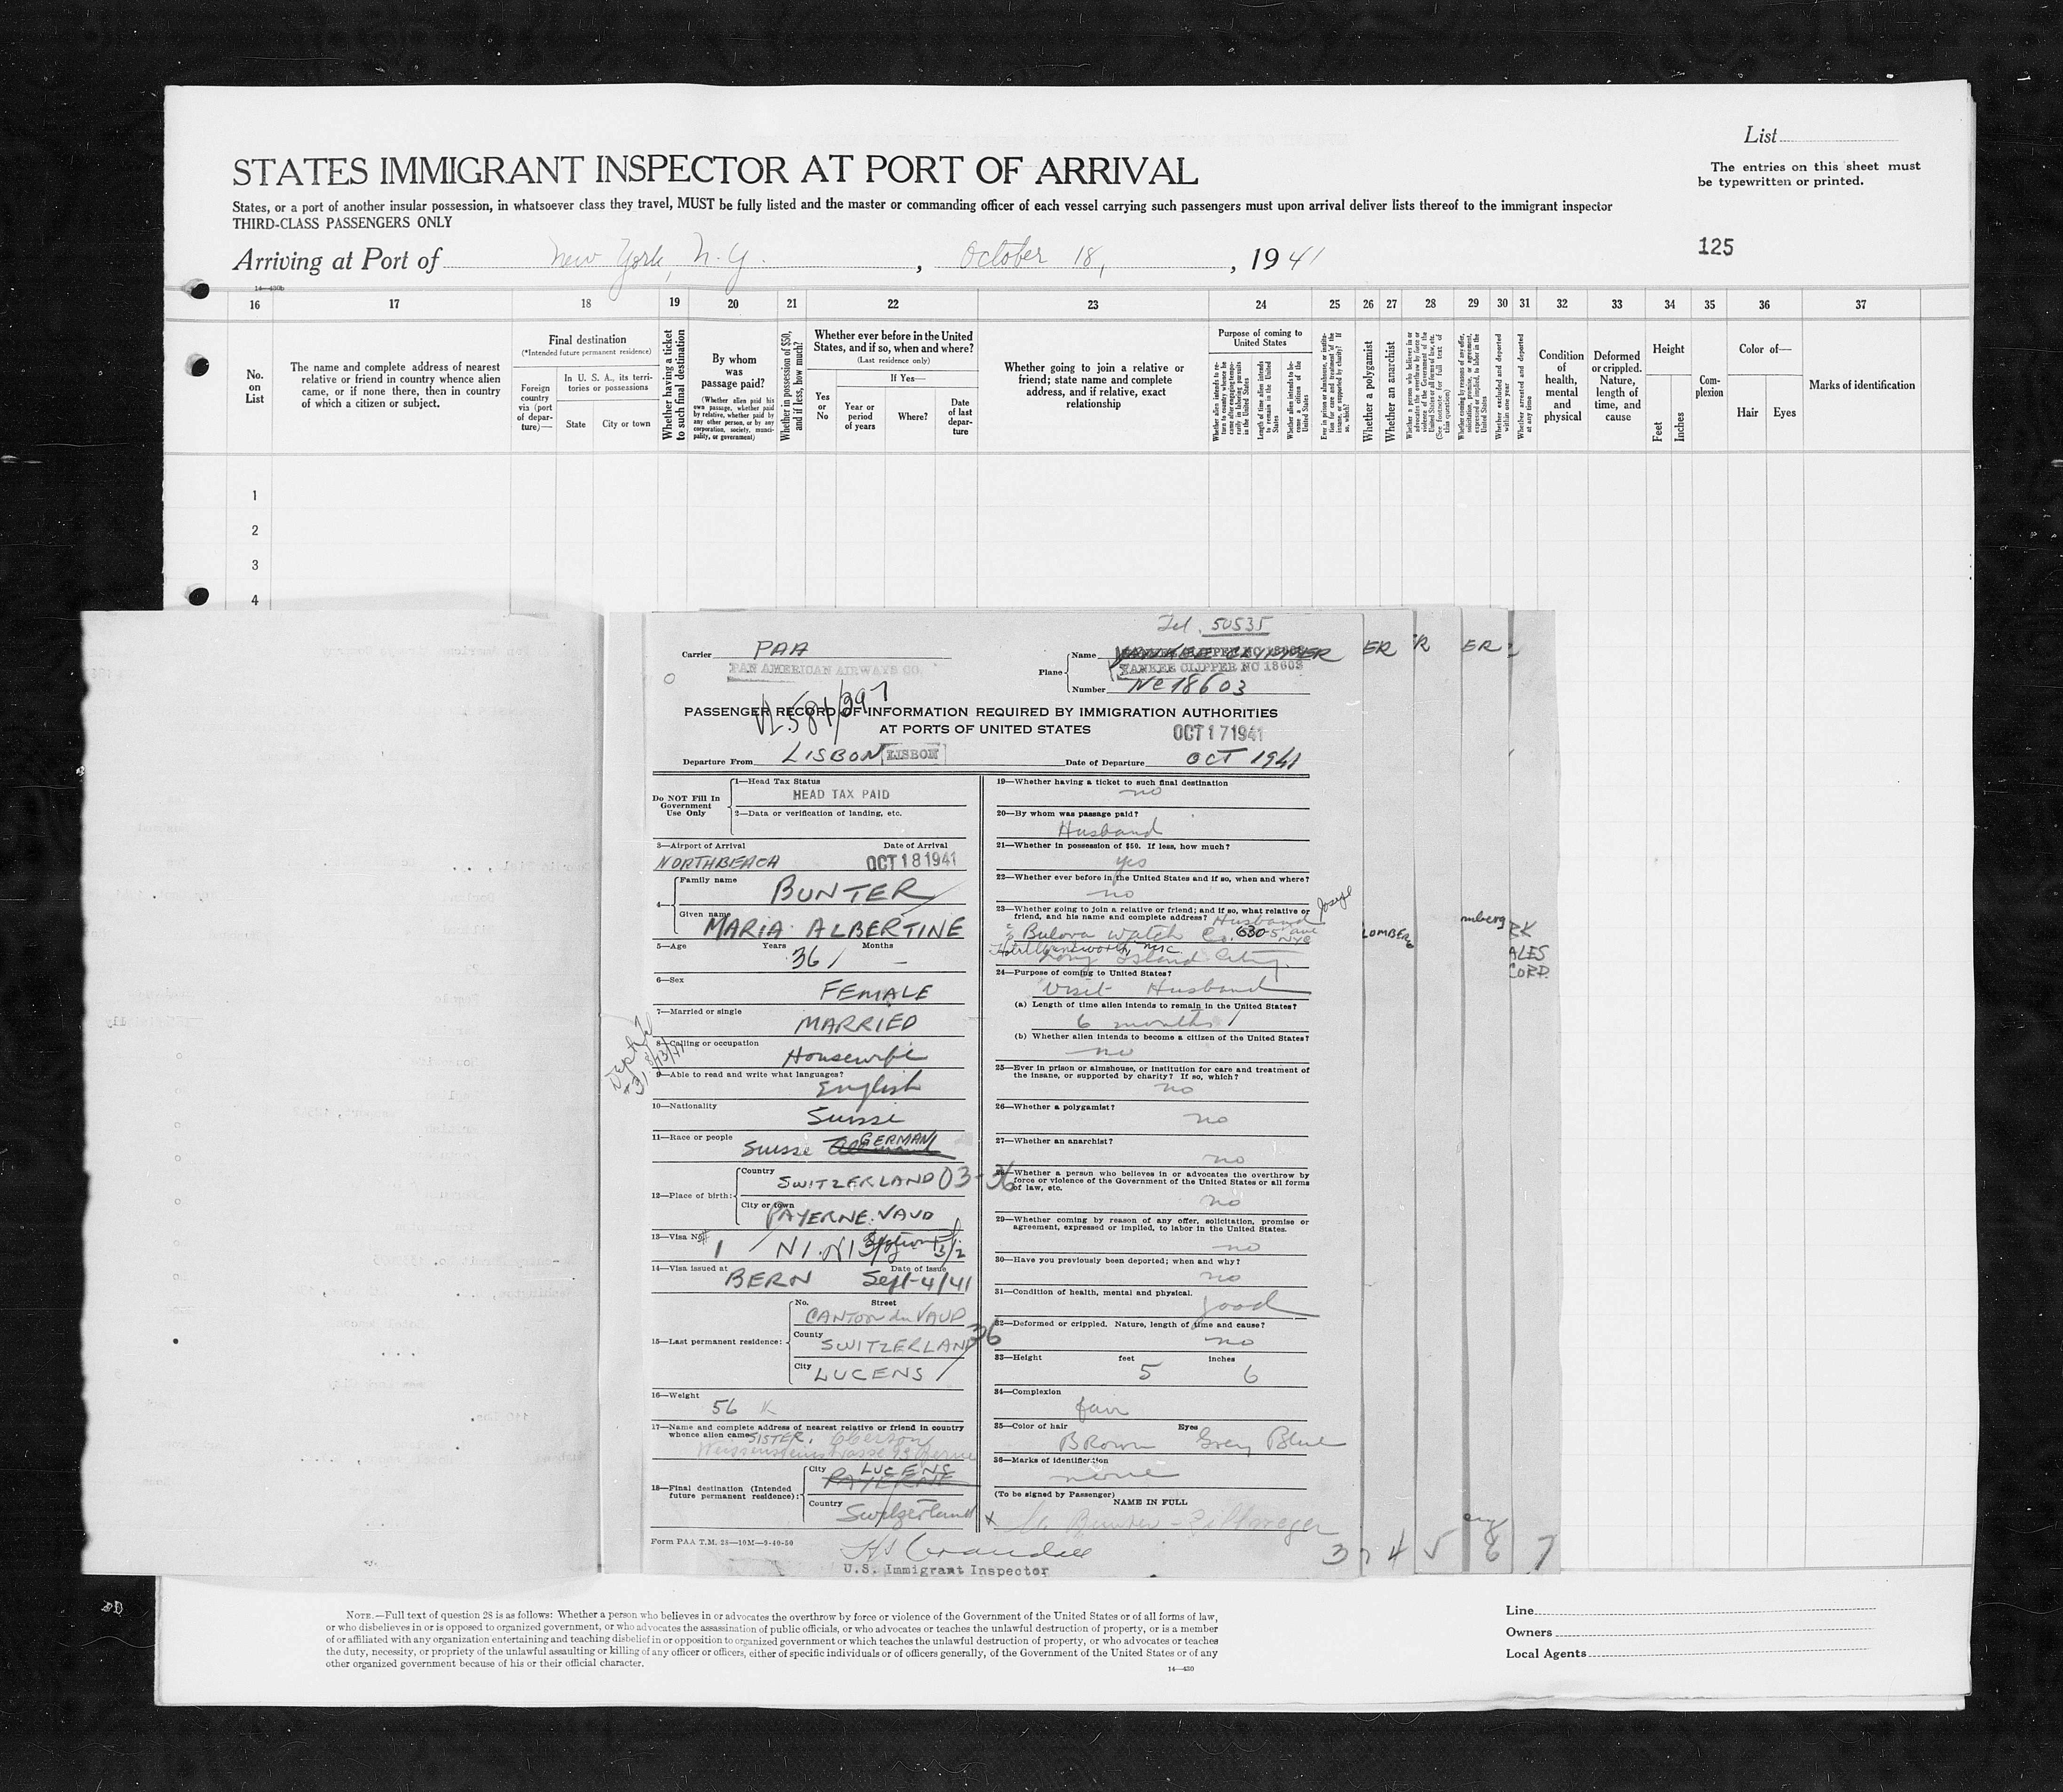 List
STATES IMMIGRANT INSPECTOR AT PORT OF ARRIVAL
The entries on this sheet must
be typewritten or printed.
States, or a port of another insular possession, in whatsoever class they travel, MUST be fully listed and the master or commanding officer of each vessel carrying such passengers must upon arrival deliver lists thereof to the immigrant inspector
THIRD-CLASS PASSENGERS ONLY
125
Arriving at Port of New York, N.Y. , October 18, , 1941
14—430b
16 17 18 19 20 21 22 23 24 25 26 27 28 29 30 31 32 33 34 35 36 37
No. on List
The name and complete address of nearest relative or friend in country whence alien came, or if none there, then in country of which a citizen or subject.
Final destination
(*Intended future permanent residence)
Foreign country via (port of departure)—
In U. S. A., its territories or possessions
State
City or town
Whether having a ticket to such final destination
By whom was passage paid?
(Whether alien paid his own passage, whether paid by relative, whether paid by any other person, or by any corporation, society, municipality, or government)
Whether in possession of $50, and if less, how much?
Whether ever before in the United States, and if so, when and where?
(Last residence only)
If Yes—
Yes or No
Year or period of years
Where?
Date of last departure
Whether going to join a relative or friend; state name and complete address, and if relative, exact relationship
Purpose of coming to United States
Length of time alien intends to remain in the United States
Whether alien intends to become a citizen of the United States
Whether a polygamist
Whether an anarchist
Whether excluded and deported within one year
Whether arrested and deported at any time
Condition of health, mental and physical
Deformed or crippled. Nature, length of time, and cause
Height
Feet
Inches
Complexion
Color of—
Hair
Eyes
Marks of identification
1
2
3
4
Tel. 50535
Carrier PAA
PAN AMERICAN AIRWAYS CO.
Plane
Name YANKEE CLIPPER NC 18603
Number NC 18603
PASSENGER RECORD OF INFORMATION REQUIRED BY IMMIGRATION AUTHORITIES
AT PORTS OF UNITED STATES
OCT 17 1941
Departure From LISBON LISBON
Date of Departure OCT 1941
Do NOT Fill In Government Use Only
1—Head Tax Status
HEAD TAX PAID
2—Data or verification of landing, etc.
3—Airport of Arrival NORTHBEACH
Date of Arrival OCT 18 1941
4— Family name BUNTER
Given name MARIA ALBERTINE
5—Age Years 36 Months —
6—Sex FEMALE
7—Married or single MARRIED
8—Calling or occupation Housewife
9—Able to read and write what languages? English
10—Nationality Suisse
11—Race or people Suisse GERMAN
12—Place of birth: Country SWITZERLAND 03-36
City or town PAYERNE. VAUD
13—Visa No. # 1 N.I. 3/2
14—Visa issued at BERN
Date of issue Sept-4/41
15—Last permanent residence:
No. Street CANTON du VAUD
County SWITZERLAND 36
City LUCENS
16—Weight 56 K
17—Name and complete address of nearest relative or friend in country whence alien came SISTER. Oberson
18—Final destination (Intended future permanent residence):
City LUCENS PAYERNE
Country Switzerland
Form PAA T.M. 28—10M—9-40-50
19—Whether having a ticket to such final destination
no
20—By whom was passage paid?
Husband
21—Whether in possession of $50. If less, how much?
yes
22—Whether ever before in the United States and if so, when and where?
no
23—Whether going to join a relative or friend; and if so, what relative or friend, and his name and complete address? Husband Joseph
c/o Bulova Watch Co. 630-5 ave NYC
Hotel Wentworth, NYC
Long Island City
24—Purpose of coming to United States?
Visit Husband
(a) Length of time alien intends to remain in the United States?
6 months
(b) Whether alien intends to become a citizen of the United States?
no
25—Ever in prison or almshouse, or institution for care and treatment of the insane, or supported by charity? If so, which?
no
26—Whether a polygamist?
no
27—Whether an anarchist?
no
28—Whether a person who believes in or advocates the overthrow by force or violence of the Government of the United States or all forms of law, etc.
no
29—Whether coming by reason of any offer, solicitation, promise or agreement, expressed or implied, to labor in the United States.
no
30—Have you previously been deported; when and why?
no
31—Condition of health, mental and physical.
good
32—Deformed or crippled. Nature, length of time and cause?
no
33—Height feet 5 inches 6
34—Complexion
fair
35—Color of hair Brown Eyes Grey Blue
36—Marks of identification
none
(To be signed by Passenger)
NAME IN FULL
x M. Bunter-Zillweger
U.S. Immigrant Inspector
ER R ER
LOMBERG
mberg
RK
ALES
CORP.
3 4 5 6 7
NOTE.—Full text of question 28 is as follows: Whether a person who believes in or advocates the overthrow by force or violence of the Government of the United States or of all forms of law,
or who disbelieves in or is opposed to organized government, or who advocates the assassination of public officials, or who advocates or teaches the unlawful destruction of property, or is a member
of or affiliated with any organization entertaining and teaching disbelief in or opposition to organized government or which teaches the unlawful destruction of property, or who advocates or teaches
the duty, necessity, or propriety of the unlawful assaulting or killing of any officer or officers, either of specific individuals or of officers generally, of the Government of the United States or of any
other organized government because of his or their official character.
14—430
Line
Owners
Local Agents